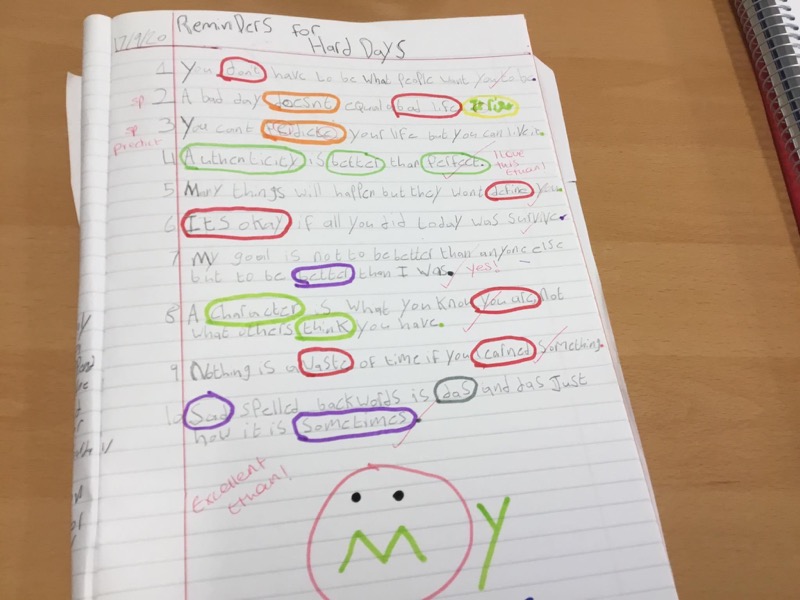 17/9/20
ReminDers for
Hard Days
1 You don't have to be what people want you to be.
sp 2 A bad day doesnt equal a bad life
sp 3 You cant your life but you can live it.
predict
4 Authenticity is better than perfect. I love
this
Ethan!
5 Many things will happen but they wont define you.
6 Its okay if all you did today was survive.
7 My goal is not to be better than anyone else
but to be better than I was. yes!
8 A character is what you know you are, not
what others think you have.
9 Nothing is a waste of time if you learned something.
10 Sad spelled backwords is das and das just
how it is sometimes.
Excellent
Ethan!
M y